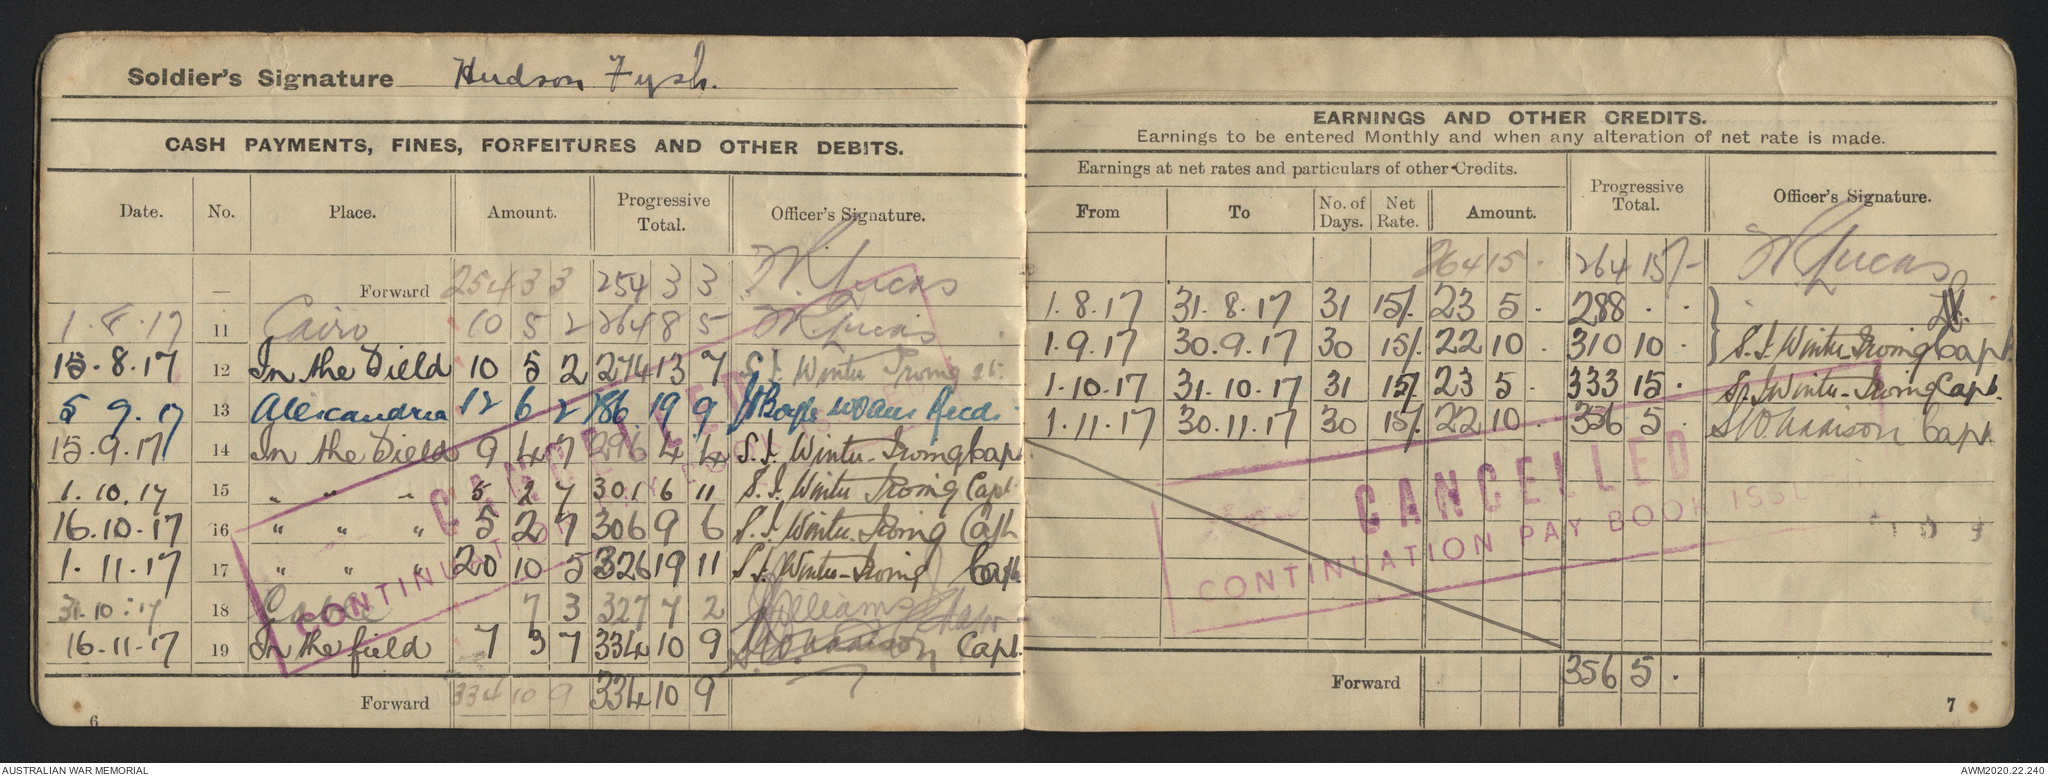 Soldier's Signature Hudson Fysh.
CASH PAYMENTS, FINES, FORFEITURES AND OTHER DEBITS.
Date. No. Place. Amount. Progressive Total. Officer's Signature.
— Forward 254 3 3 254 3 3 W. Lucas
1.8.17 11 Cairo 10 5 2 264 8 5 W Lucas
15.8.17 12 In the Field 10 5 2 274 13 7 S.I. Winter-Irving Lt.
5 9.17 13 Alexandria 12 6 2 286 19 9
15.9.17 14 In the Field 9 4 7 296 4 4 S.I. Winter-Irving Capt
1.10.17 15 " " " 5 2 7 301 6 11 S.I. Winter Irving Capt.
16.10.17 16 " " " 5 2 7 306 9 6 S.I. Winter-Irving Capt
1.11.17 17 " " " 20 10 5 326 19 11 S.I. Winter-Irving Capt
31.10.17 18 7 3 327 7 2 Williams Major
16.11.17 19 In the field 7 3 7 334 10 9 Capt.
Forward 334 10 9 334 10 9
6
CANCELLED
CONTINUATION PAY BOOK ISSUED
EARNINGS AND OTHER CREDITS.
Earnings to be entered Monthly and when any alteration of net rate is made.
Earnings at net rates and particulars of other Credits. Progressive Total. Officer's Signature.
From To No. of Days. Net Rate. Amount.
264 15 . 264 15/- W Lucas
1.8.17 31.8.17 31 15/. 23 5 . 288 . . Lt.
1.9.17 30.9.17 30 15/. 22 10 . 310 10 . S.I. Winter-Irving Capt.
1.10.17 31.10.17 31 15/. 23 5 . 333 15 . S.I. Winter-Irving Capt.
1.11.17 30.11.17 30 15/. 22 10 . 356 5 . Capt
CANCELLED
CONTINUATION PAY BOOK ISSU
Forward 356 5 .
7
AUSTRALIAN WAR MEMORIAL AWM2020.22.240